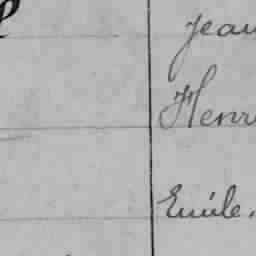 Jean
Henri
Emile.